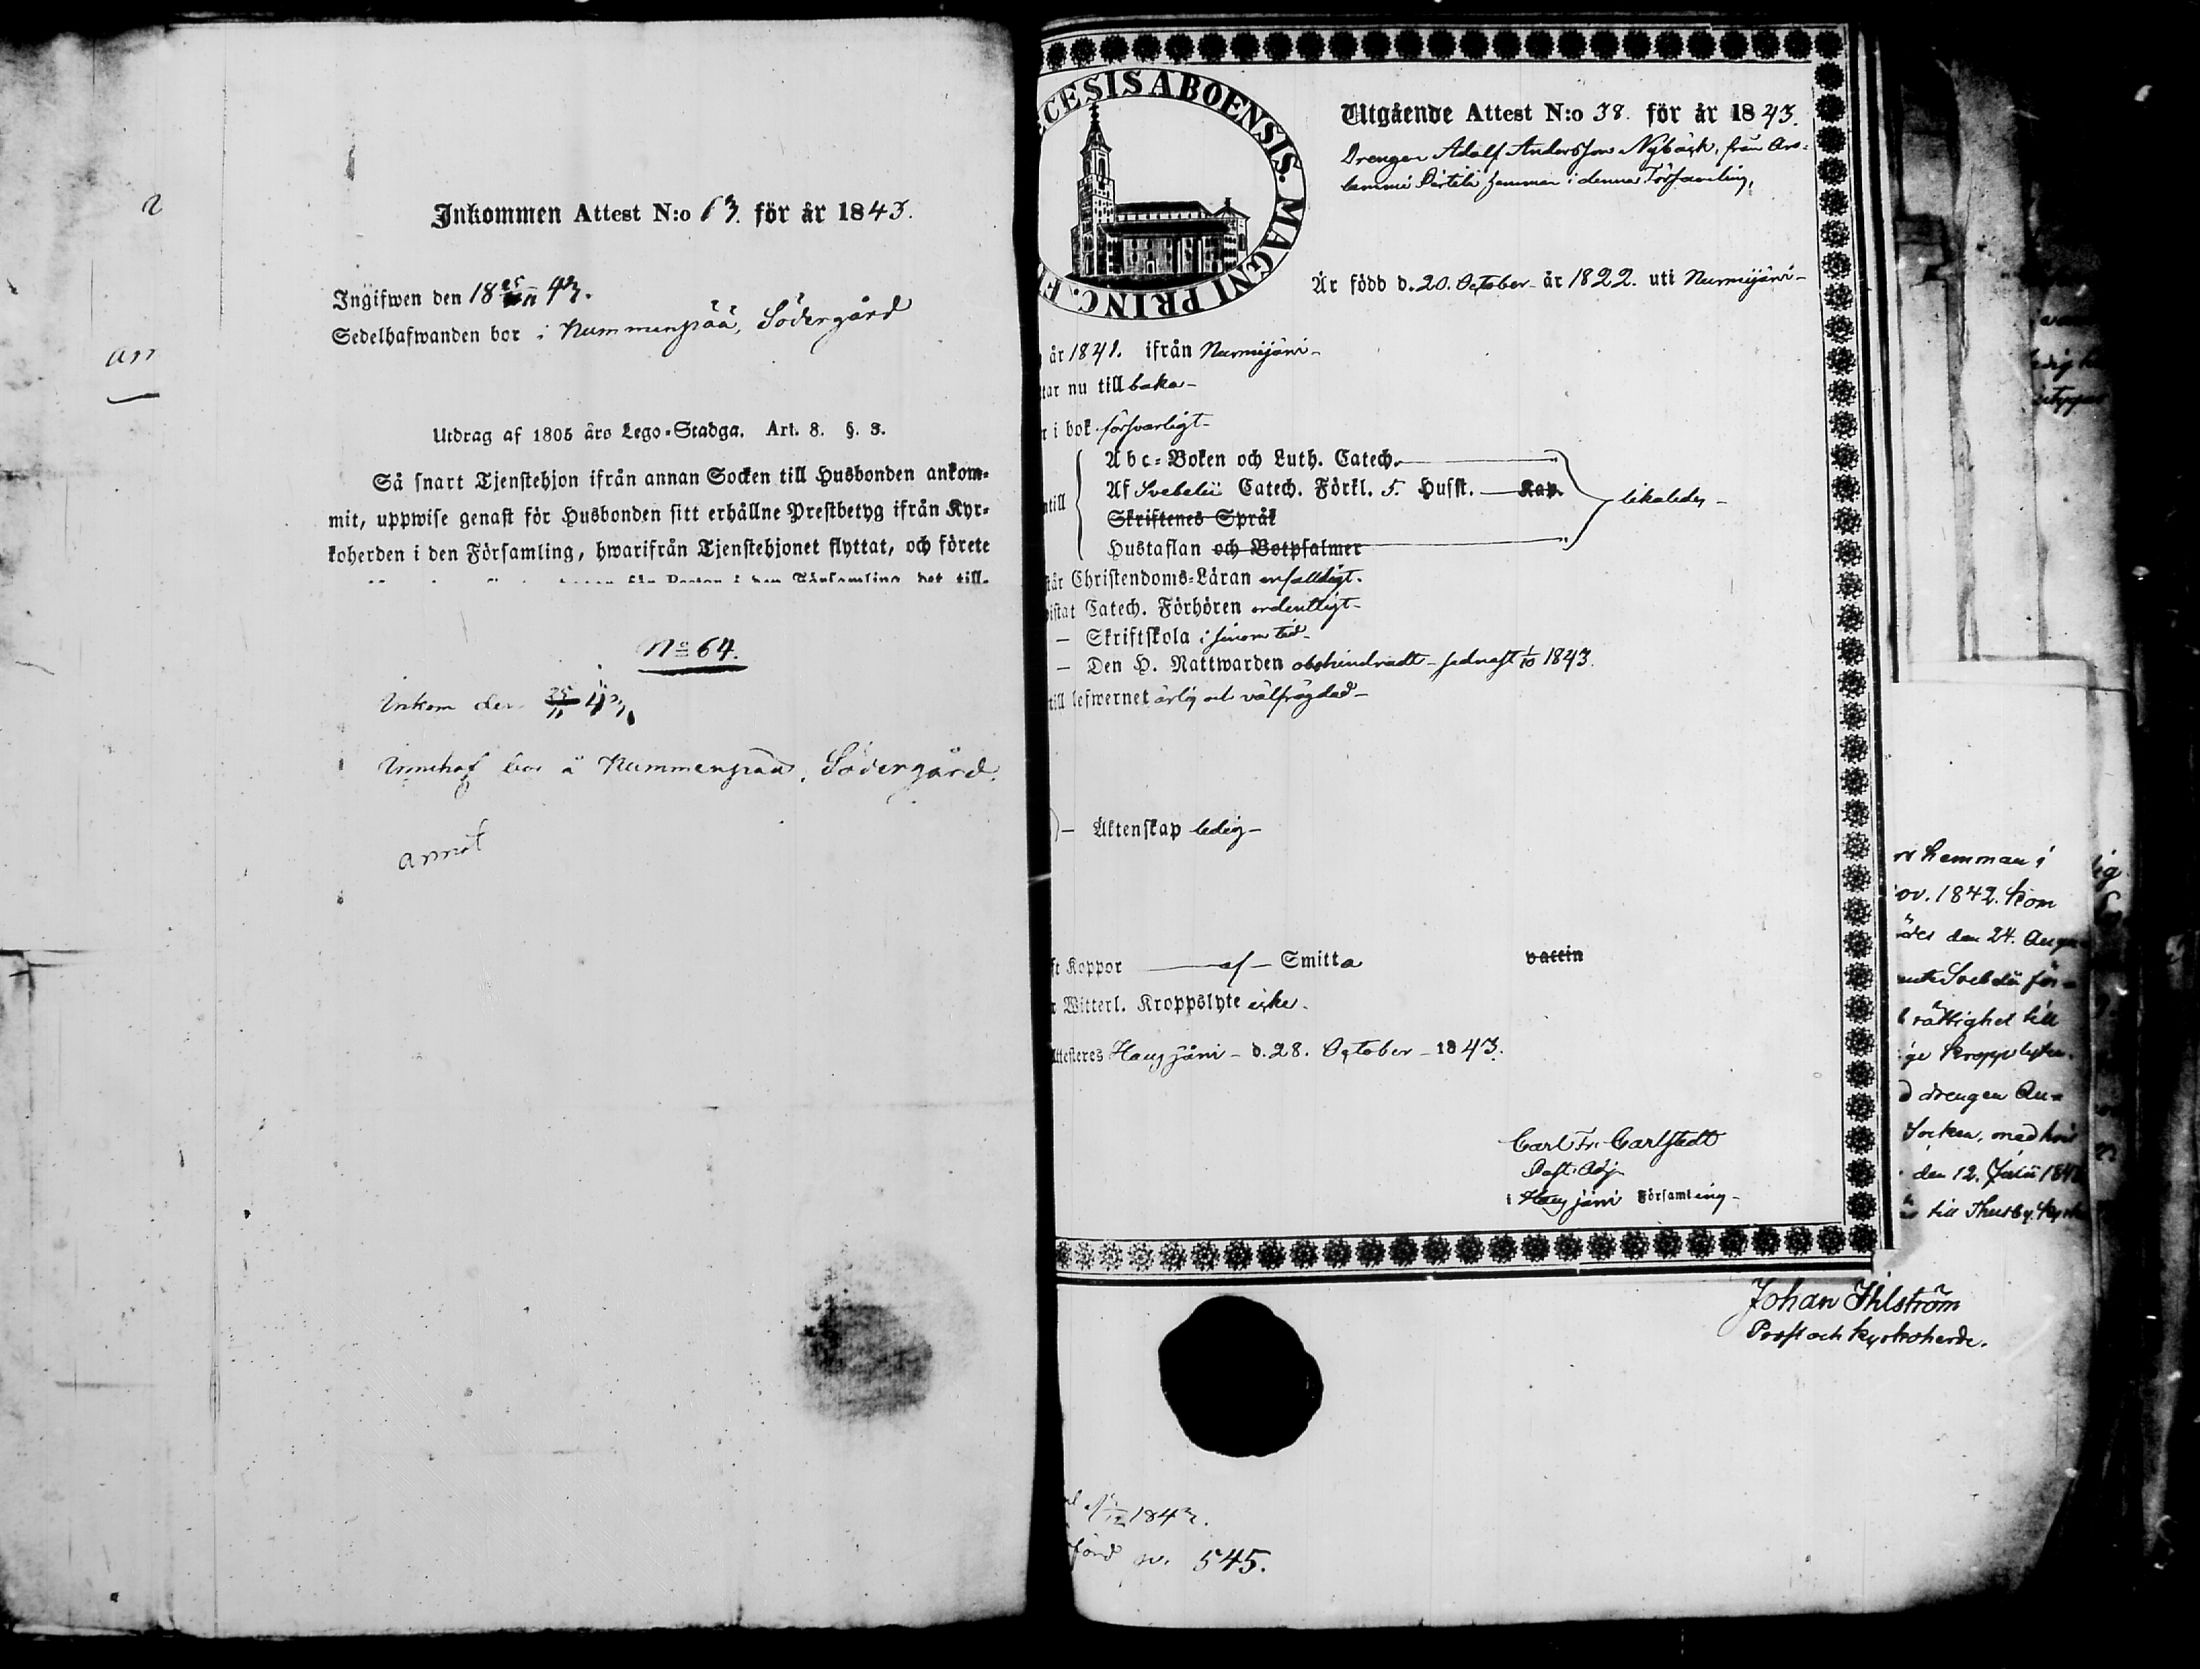 Inkommen Attest N:o 63. för år 1843.
Ingifwen den 18 25/11 43.
Sedelhafwanden bor i Nummenpää, Södergård
ann
Utdrag af 1805 års Lego-Stadga. Art. 8. §. 3.
Så snart Tjenstehjon ifrån annan Socken till Husbonden ankom-
mit, uppwise genast för Husbonden sitt erhållne Prestbetyg ifrån Kyr-
koherden i den Församling, hwarifrån Tjenstehjonet flyttat, och förete
No 64.
Inkom den 25/11 43.
Innehaf bor å Nummenpää, Södergård.
annot
CESIS ABOENSIS. MAGNI PRINC. F
Utgående Attest N:o 38. för år 1843.
Drengen Adolf Andersson Nybäck, från
Pertelä hemman i denna Församling,
Är född d. 20. October år 1822. uti Nurmijärvi
år 1841. ifrån Nurmijärvi
tar nu tillbaka
i bok försvarligt
Abc-Boken och Luth. Catech.
Af Svebelii Catech. Förkl. 5. Husst. Kap.
ntill
likaledes
Skriftenes Språk
Hustaflan och Botpsalmer
står Christendoms-Läran enfalldigt.
istat Catech. Förhören ordentligt
— Skriftskola i sinom tid
— Den H. Nattwarden obehindradt sednast 1/10 1843.
till lefwernet ärlig och välfrägdad
— Äktenskap ledig
ft Koppor af Smitta vaccin
r Witterl. Kroppslyte icke.
Attesteres Haugjärvi d. 28. October 1843.
Carl Fr. Carlstedt
Past. Adj.
i Haugjärvi Församling
hemman i
ov. 1842. kom
den 24. Augu
Svebelii för-
rättighet till
ge kroppslyten.
drengen An-
Socken, med hvil
den 12. Julii 184
till Thusby kyrk
Johan Ihlström
Prost och kyrkoherde.
1843.
förd p. 545.